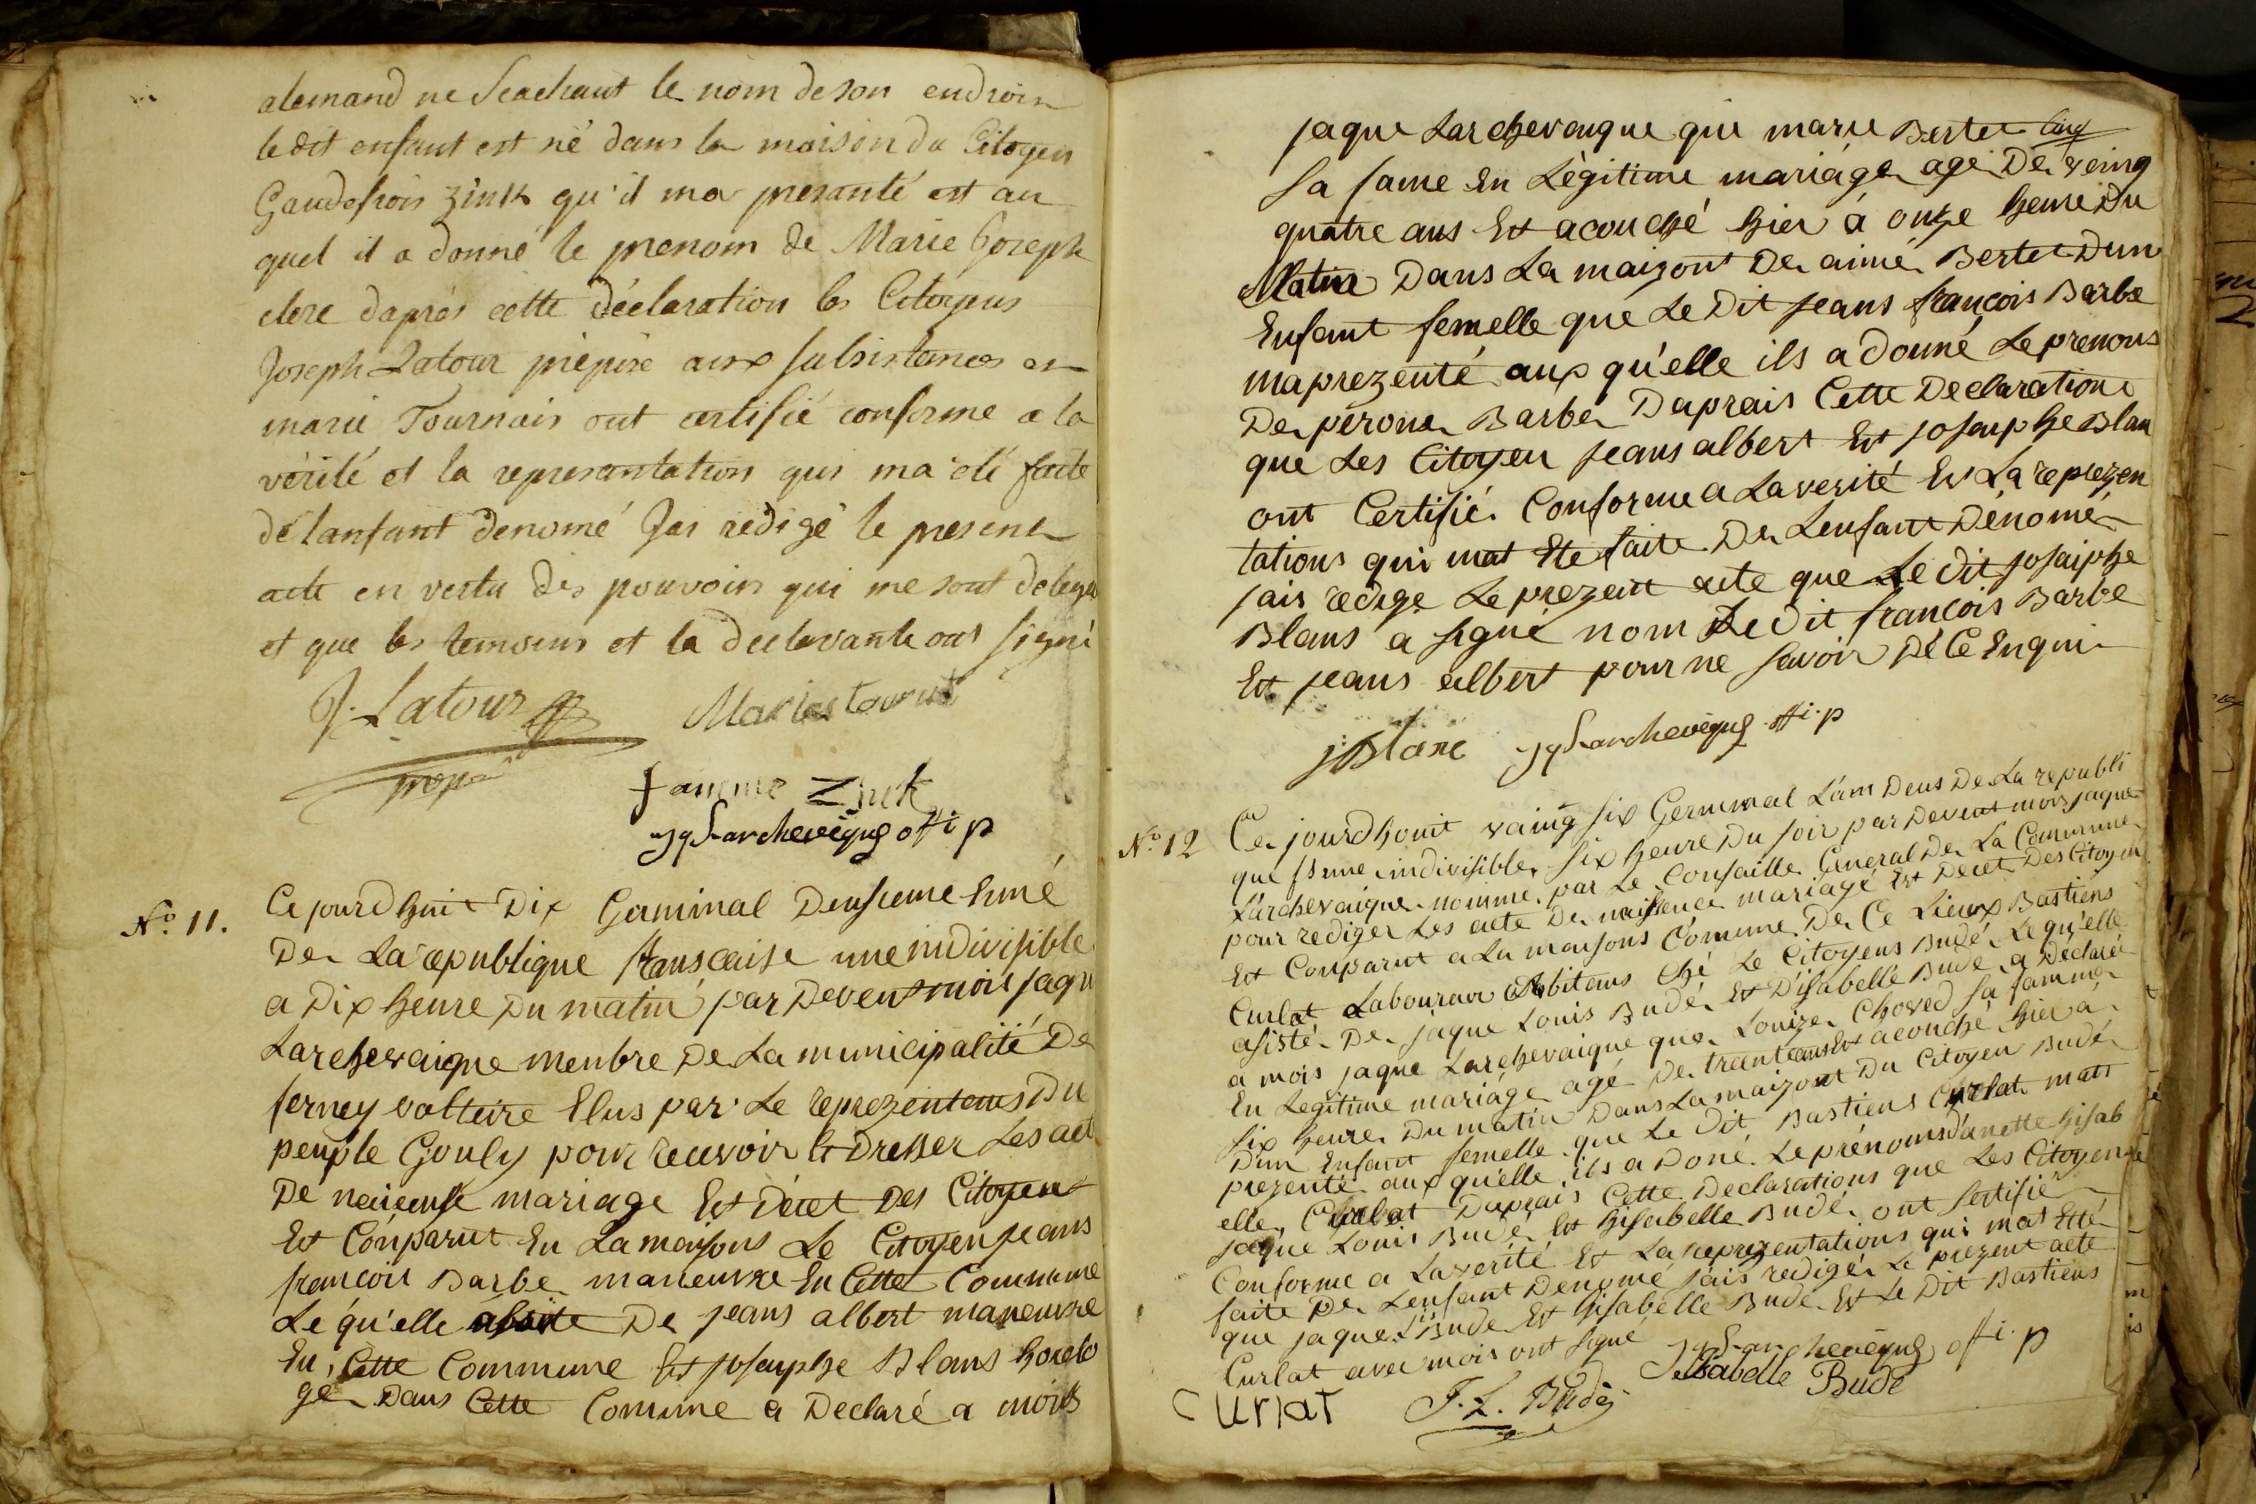 alemand ne Scachant le nom de son endroit
le dit enfant est né dans la maison du Citoyen
Gaudefrois Zink qu'il ma presanté et au
quel il a donné le prenom de Marie Joseph
clere daprès cette déclaration les Citoyens
Joseph Latour prépose aux subsistances et
marie Tournais ont certifié conforme a la
vérité et la representation qui ma été faite
de lanfant denomé Jai rédigé le present
acte en vertu des pouvoirs qui me sont delegue
et que les temoins et la declarante ont signé
J. Latour
Marie
prop
Janeme Zink
jq Larchevêque offi p
N.º 11.
Ce jourdhuit Dix Germinal Deusieme Enné
De La republique franscaise une indivisible
a Dix heure Du matin par Devent mois jaqu
Larchevaique menbre De La municipalité De
ferney voltaire Elus par Le reprezentans Du
peuple Gouly pour recevoir Et Dresser Les act
De naicense mariage Est Décet Des Citoyen
Est Conparut En La maisons Le Citoyen jeans
francois Barbe maneuvre En Cette Commune
Le qu'elle De jeans albert maneuvre
En Cette Commune Est josauphe Blans horelo
gé Dans Cette Comune a Declaré a mois
jaque Larchevauque que marie Bertet
sa fame En Légitime mariage age De veing
quatre ans Est acouché hier a onze heure Du
Matin Dans La maizont De aimé Bertet Dun
Enfant femelle que Le Dit jeans francois Barbe
maprezenté aux qu'elle ils a Donné Le prenons
De perone Barbe Daprais Cette Declaration
que Les Citoyen jeans albert Est josauphe Blan
ont Certifié Conforme a La verité Est La reprezen
tations qui mat Ete faite De Lenfant Dénomé
jais redige Le prezent acte que Le Dit josaiphe
Blans a signé nom Le Dit francois Barbe
Est jeans albert pour ne savoir De Ce Enqui
jBlanc jq Larchevêque offi. p
N.º 12
Ce jourdhouit vaing six Germinal L'am Deus De La republi
que une indivisible six heure Du soir par Devent mois jaque
Larchevaique nommé par Le Consaille General De La Commune
pour rediger Les acte De naissence mariagé Est Decet Des Citoyen
Est Conparut a La maysons Comune De Ce Lieux Bastiens
Curlat Laboureur Abitans ché Le Citoyens Budé Le qu'elle
asisté De jaque Louis Budé Est D'isabelle Budé a Déclaré
a mois jaque Larchevaique que Louize Choved sa famme
En Legitime mariage agé De trant ans Est acouché hier a
six heure Du matin Dans La maizont Du Citoyen Budé
Dun Enfant femelle que Le Dit Bastiens Curlat matt
prezenté aux qu'elle ils a Doné Le prénoms D'anette hisab
elle Curlat Daprais Cette Declarations que Les Citoyen
jaque Louis Budé Est hisabelle Budé ont sertifié
Conforme a La verité Est La reprezentations qui mat Etté
faite De Lenfant Denomé jais redigér Le prezent acte
que jaque Ls Budé Est hisabelle Budé Est Le Dit Bastiens
Curlat avec mois ont signé jq Larchevêque offi. p
Curlat J. L. Budé Isabelle Budé